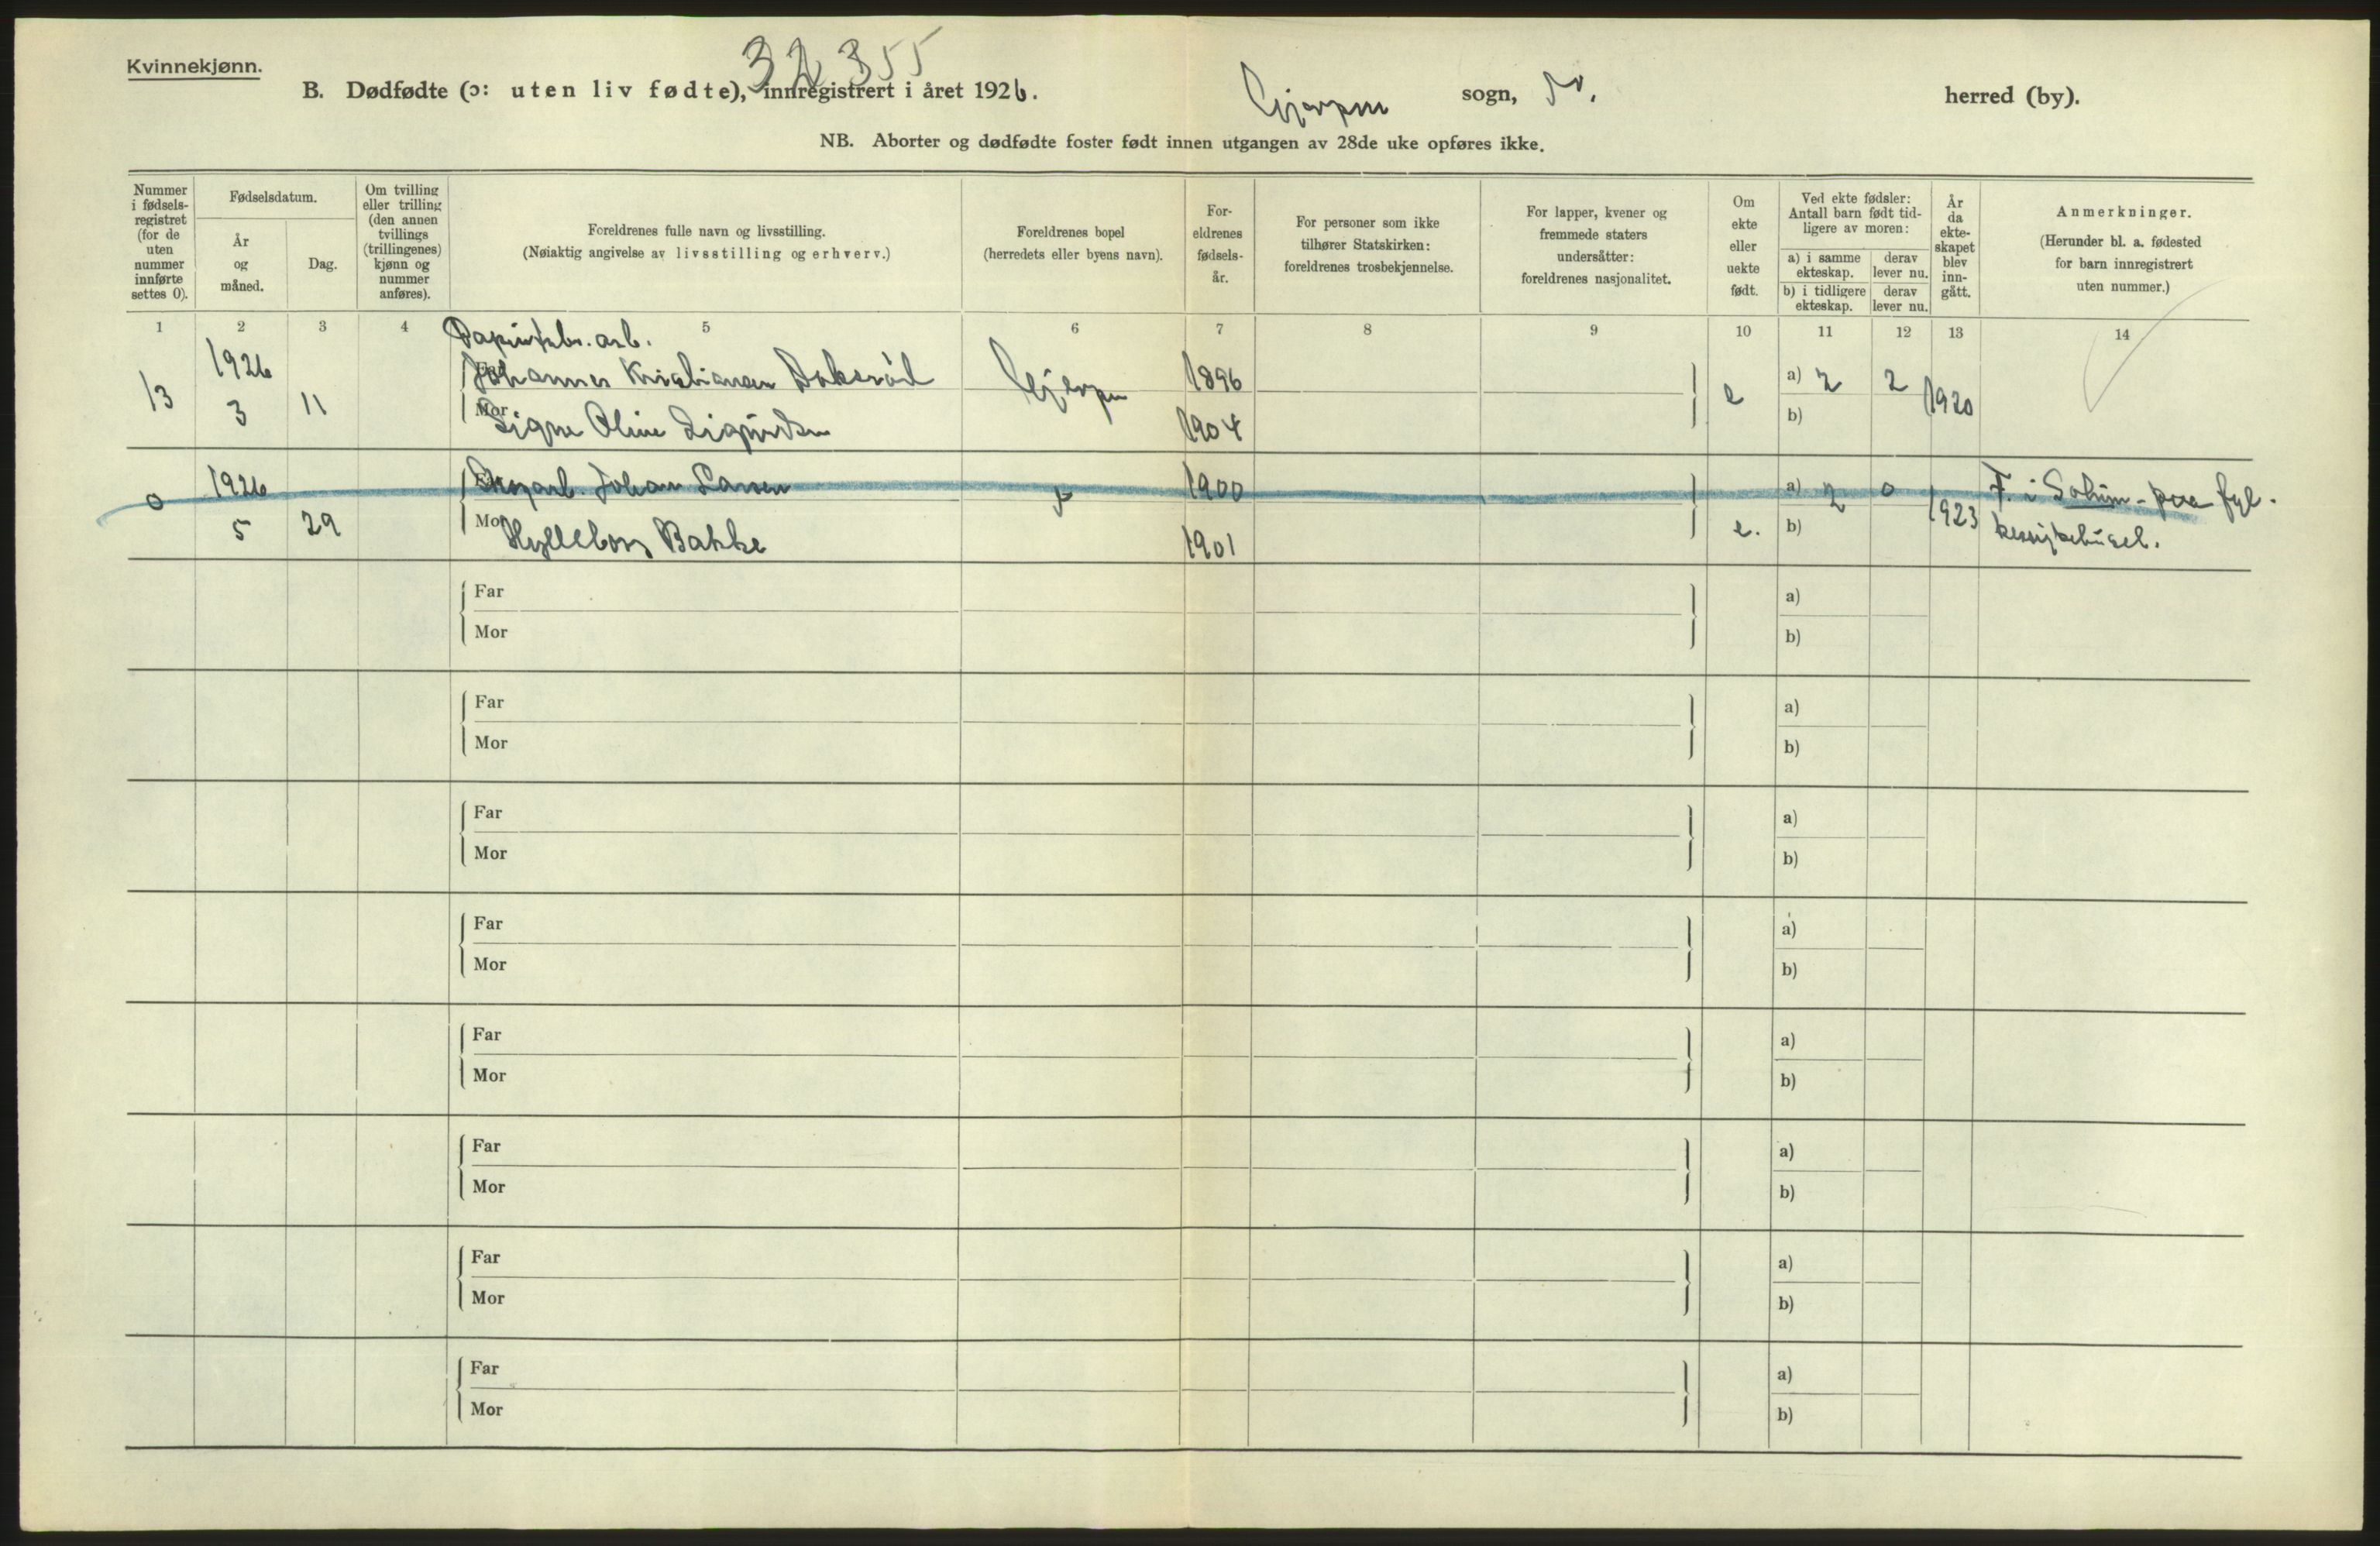 Kvinnekjønn.
32355
B. Dødfødte (ɔ: uten liv fødte), innregistrert i året 1926. Gjerpen sogn, herred (by).
NB. Aborter og dødfødte foster født innen utgangen av 28de uke opføres ikke.
Nummer i fødsels-registret (for de uten nummer innførte settes 0).
Fødselsdatum.
År og måned.
Dag.
Om tvilling eller trilling (den annen tvillings (trillingenes) kjønn og nummer anføres).
Foreldrenes fulle navn og livsstilling.
(Nøiaktig angivelse av livsstilling og erhverv.)
Foreldrenes bopel
(herredets eller byens navn).
For-eldrenes fødsels-år.
For personer som ikke tilhører Statskirken: foreldrenes trosbekjennelse.
For lapper, kvener og fremmede staters undersåtter: foreldrenes nasjonalitet.
Om ekte eller uekte født.
Ved ekte fødsler: Antall barn født tid-ligere av moren:
a) i samme ekteskap.
derav lever nu.
b) i tidligere ekteskap.
derav lever nu.
År da ekte-skapet blev inn-gått.
Anmerkninger.
(Herunder bl. a. fødested for barn innregistrert uten nummer.)
1 2 3 4 5 6 7 8 9 10 11 12 13 14
Papirfabr. arb.
13 1926 3 11
Far Johannes Kristiansen Gjerpen 1896
Mor Signe Oline 1904
e a) 2 2 1920
b)
0 1926 5 29
Far Johan Larsen 1900
Mor Hylleborg Bakke 1901
e. a) 2 0 1923
b)
F. i Solum - paa fyl-
kessykehuset.
Far a)
Mor b)
Far a)
Mor b)
Far a)
Mor b)
Far a)
Mor b)
Far a)
Mor b)
Far a)
Mor b)
Far a)
Mor b)
Far a)
Mor b)